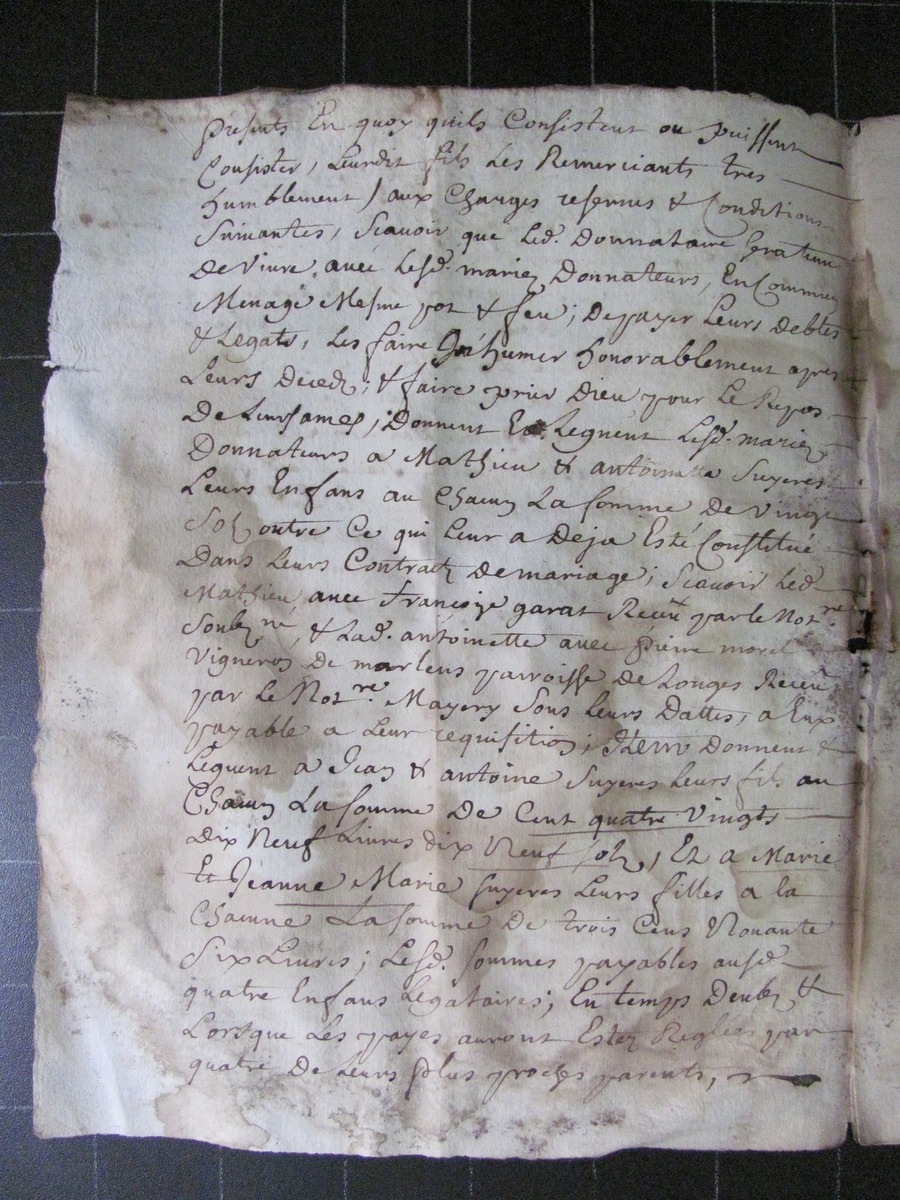 presents En quoy quils Consistent ou puissent
Consister, Leurdit fils Les Remerciants tres
humblement / aux Charges reserves & Conditions
Suivantes, Scavoir que Led. Donnataire sera tenu
De Vivre, avec Lesd. mariez Donnateurs, En Commun
Menage Mesme pot & feu; De payer Leurs debtes
& Legats, Les faire Inhumer honorablement apres
Leurs Decedz; & faire prier Dieu pour Le Repos
De Leurs ames; Donnent Et Leguent Lesd. mariez
Donnateurs a Mathieu & antoinette Suyeres
Leurs Enfans au Chacun La somme de Vingt
Solz outre Ce qui Leur a Deja Esté Constitué
Dans Leurs Contractz De mariage; Scavoir Led.
Mathieu avec Françoise garat Receu par le Notre
Soubzné, & Lad. antoinette avec pierre morel
Vigneron De marlens parroisse De Longes Receu
par Le Notre Mayery Sous Leurs Dattes, a Eux
payable a Leur requisition; Item Donnent &
Leguent a Jean & antoine Suyeres Leurs fils au
Chacun La somme De Cent quatre Vingts
Dix Neuf Livres dix Neuf solz, Et a Marie
Et Jeanne Marie suyeres Leurs filles a la
Chacune La somme De trois Cens Nonante
Six Livres; Lesd. sommes payables ausd.
quatre Enfans Legataires; En temps Deubz &
Lorsque Les payes auront Estez Reglées par
quatre De Leurs plus proches parents,